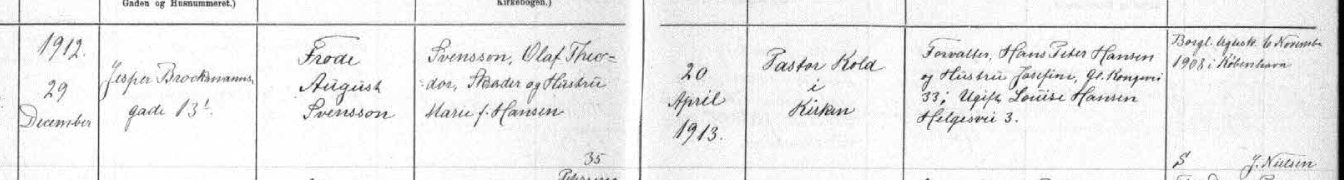 Gaden og Husnummeret.)
Kirkebogen.)
1912.
29
December
Jesper Brochmanns
gade 13¹
Frode
August
Svensson
Svensson, Olaf Theo-
dor, Skræder og Hustru
Marie f. Hansen
35
20
April
1913.
Pastor Kold
i
Kirken
Forvalter, Hans Peter Hansen
og Hustru Josefine, Gl. Kongevei
33; Ugift Louise Hansen
Helgesvei 3.
Borgl. 6 Novemb.
1908 i København
S J. Nielsen